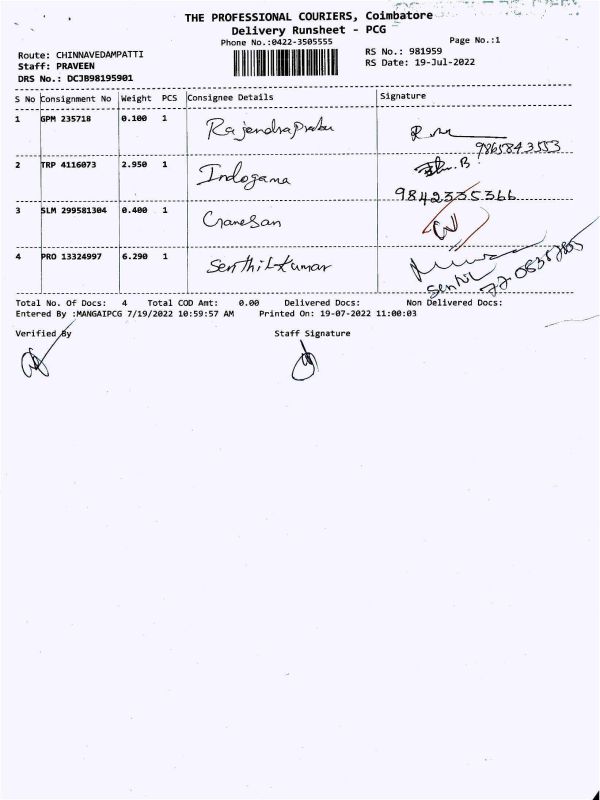 THE PROFESSIONAL COURIERS, Coimbatore
Delivery Runsheet - PCG
Phone No.:0422-3505555
Page No.:1
Route: CHINNAVEDAMPATTI
RS No.: 981959
Staff: PRAVEEN
RS Date: 19-Jul-2022
DRS No.: DCJB98195901
S No Consignment No Weight PCS Consignee Details Signature
1 GPM 235718 0.100 1 Rajendraprabu
9865843553
2 TRP 4116073 2.950 1 Indogama
9842335366
3 SLM 299581304 0.400 1 Ganesan
4 PRO 13324997 6.290 1 Senthil Kumar
Total No. Of Docs: 4 Total COD Amt: 0.00 Delivered Docs: Non Delivered Docs:
Entered By :MANGAIPCG 7/19/2022 10:59:57 AM Printed On: 19-07-2022 11:00:03
Verified By Staff Signature